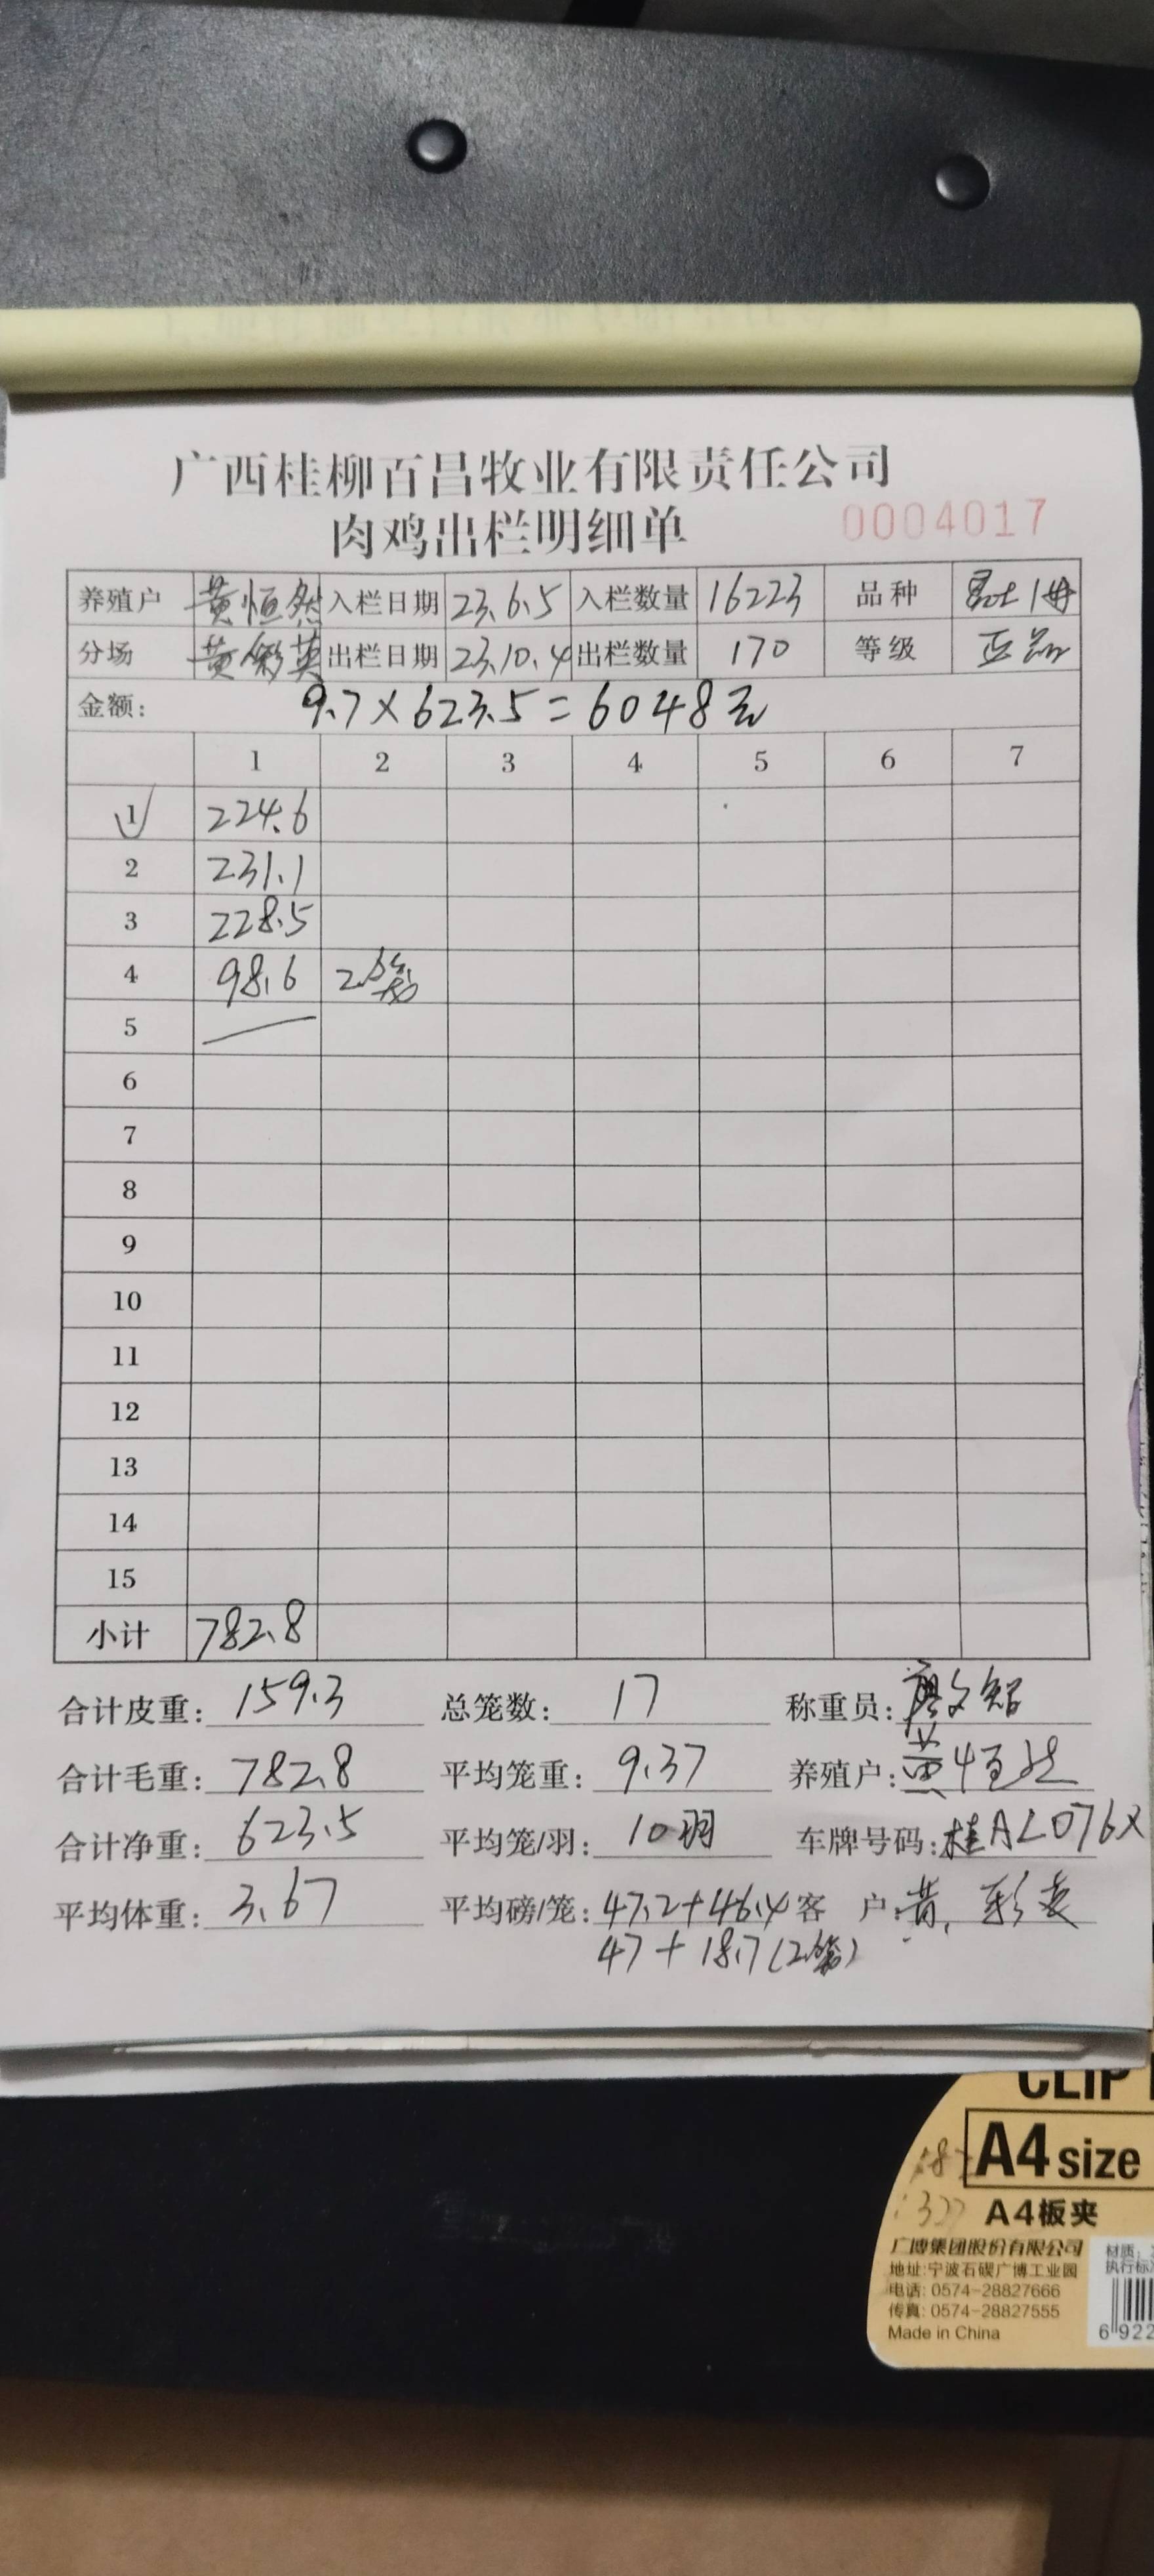 广西桂柳百昌牧业有限责任公司
肉鸡出栏明细单 0004017
养殖户 黄恒然 入栏日期 23.6.5 入栏数量 16223 品种
分场 黄彩英 出栏日期 23.10.4 出栏数量 170 等级 正品
金额: 9.7×623.5=6048元
1 2 3 4 5 6 7
1 224.6
2 231.1
3 228.5
4 98.6 2笼
5
6
7
8
9
10
11
12
13
14
15
小计 782.8
合计皮重: 159.3 总笼数: 17 称重员: 廖文智
合计毛重: 782.8 平均笼重: 9.37 养殖户: 黄恒然
合计净重: 623.5 平均笼/羽: 10羽 车牌号码: 桂AL076X
平均体重: 3.67 平均磅/笼: 47.2+46.4 客 户: 黄
47+18.7(2笼)
CLIP
A4 size
A4板夹
广博集团股份有限公司
地址:宁波石碶广博工业园
电话: 0574-28827666
传真: 0574-28827555
Made in China
材质:
执行标
6 922